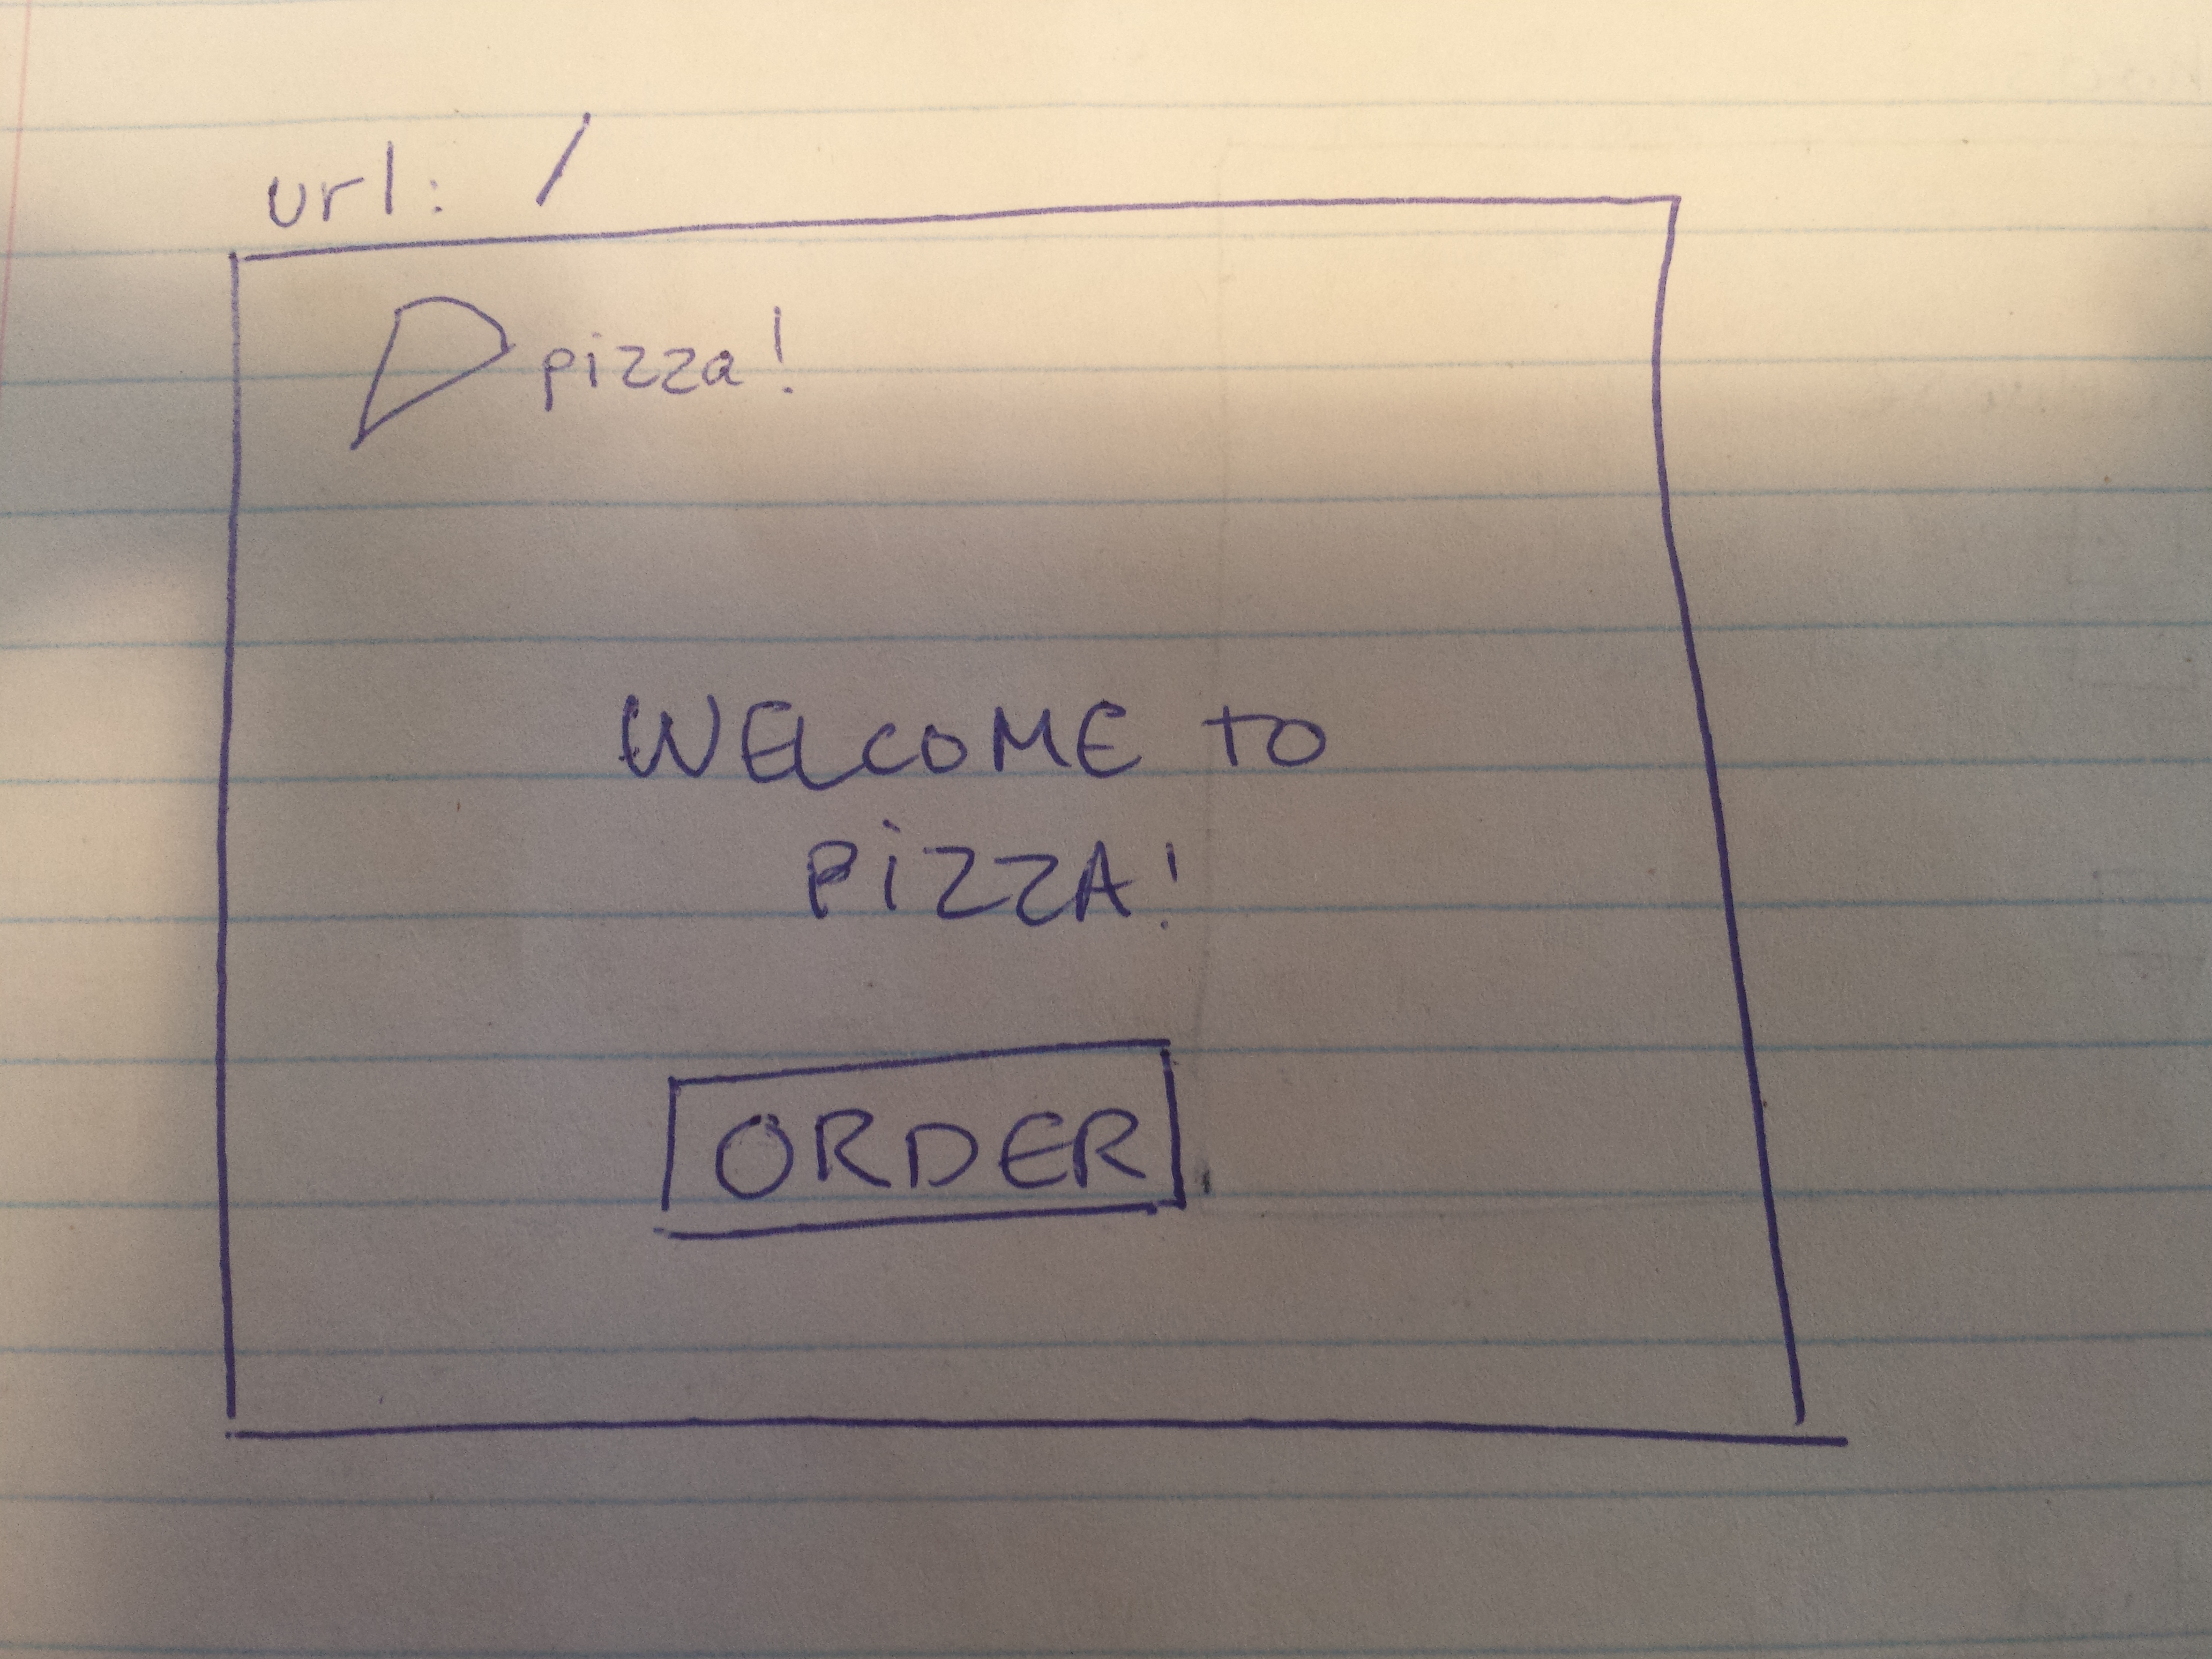 url: /
pizza!
WELCOME to
PiZZA!
ORDER